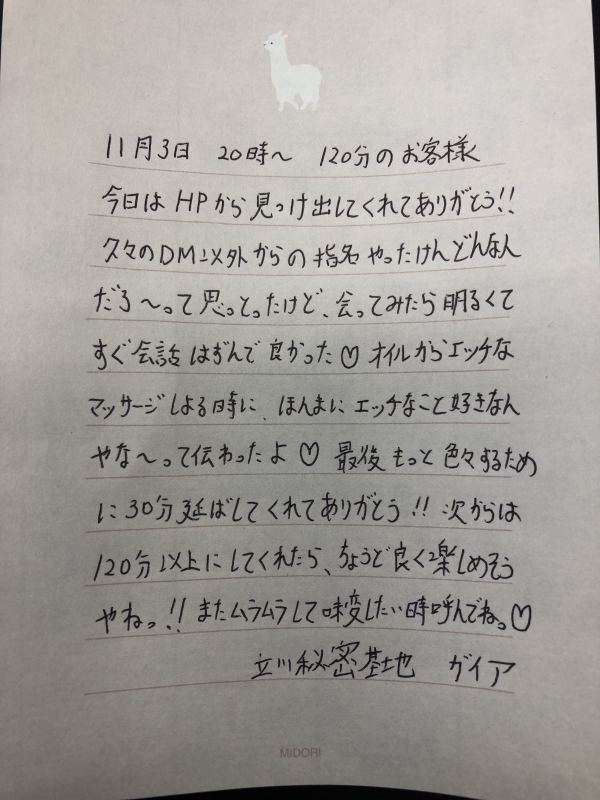 11月3日 20時〜 120分のお客様
今日はHPから見っけ出してくれてありがとう!!
久々のDM以外からの指名やったけんどんな人
だろ〜って思っとったけど、会ってみたら明るくて
すぐ会話はずんで良かった♡ オイルからエッチな
マッサージしよる時に、ほんまにエッチなこと好きなん
やな〜って伝わったよ♡ 最後もっと色々するため
に30分延ばしてくれてありがとう!! 次からは
120分以上にしてくれたら、ちょうど良く楽しめそう
やねっ!! またムラムラして味変したい時呼んでね。♡
立川秘密基地 ガイア
MiDORi